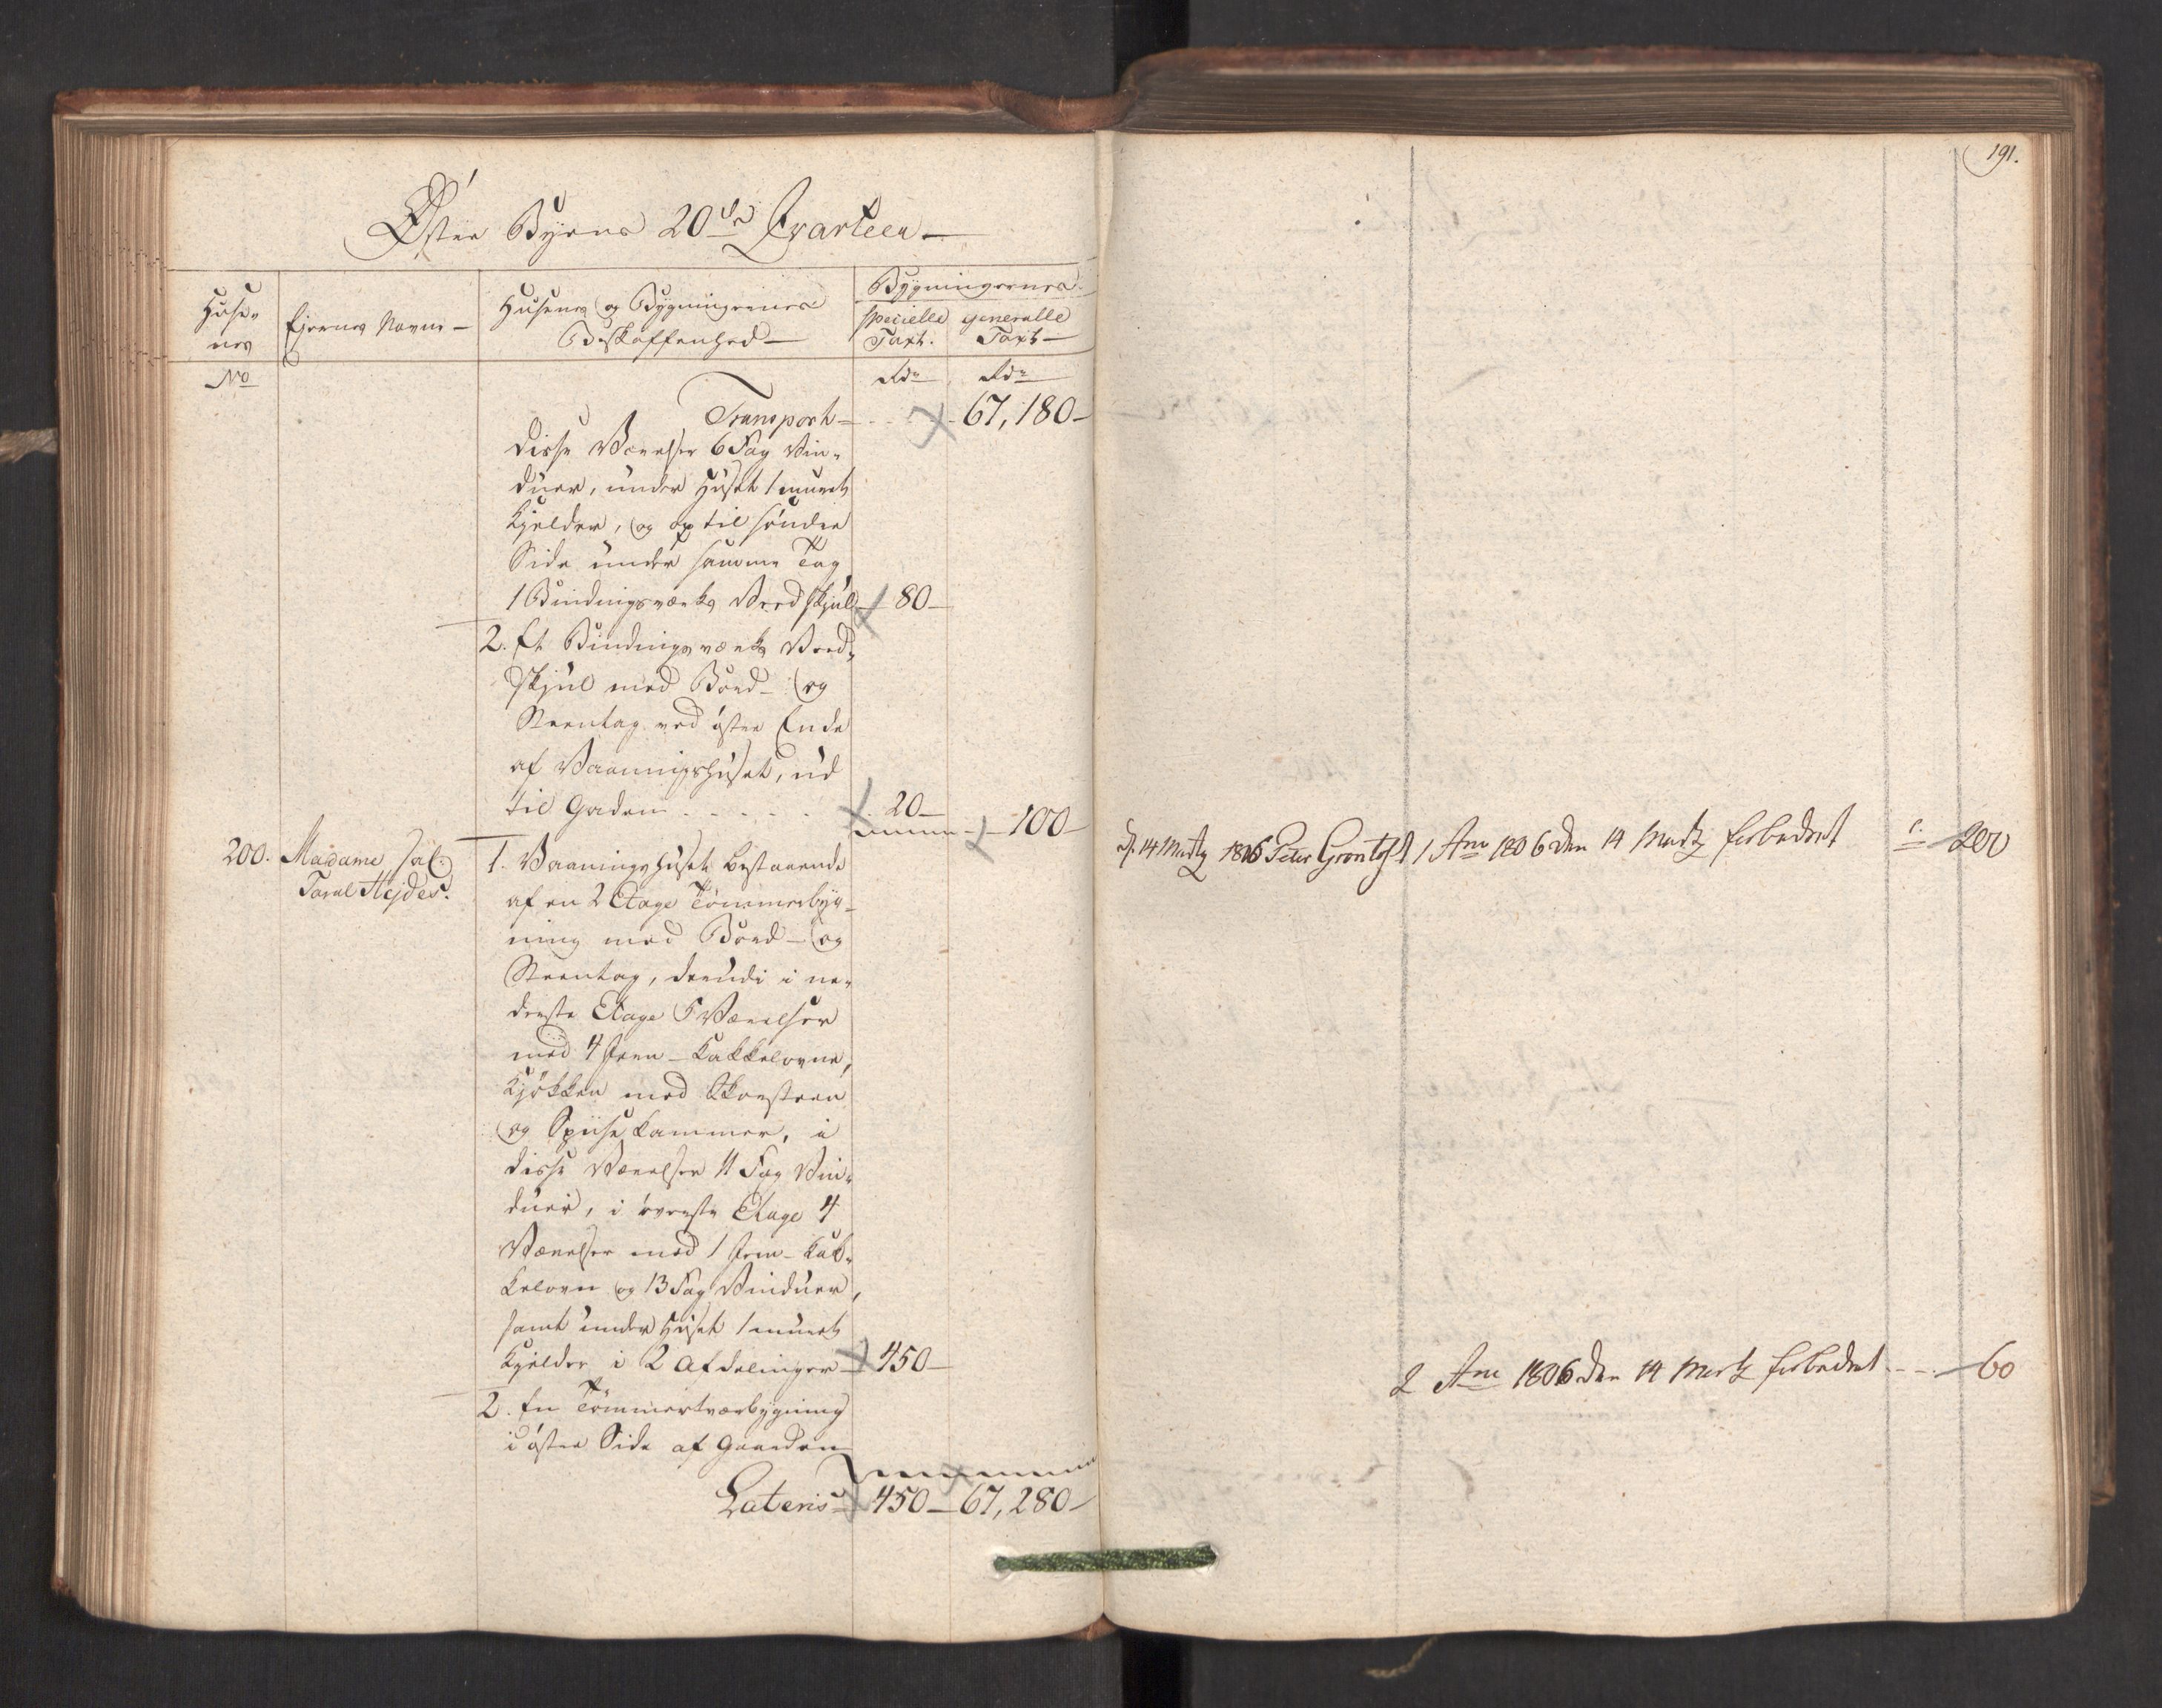 191.
Øster Byens 20de Qvarteer
Huse-
nes
Ejernes Navne
Husenes og Bygningernes
Beskaffenhed
Bygningernes
specielle
Taxt.
generalle
Taxt
No
Rdr
Rdr
Transport 67,180
disse Værelser 6 Fag Vin-
duer, under Huset 1 muret
Kjelder, og op til søndre
Side under samme Tag
1 Bindingsværks Vedskjul 80
2. Et Bindingsværks Ved-
skjul med Bord- og
Steentag ved østre Ende
af Vaaningshuset, ud
til Gaden . . . . . 20 100
200. Madame Sal:
Taral Hejdes.
1. Vaaningshuset bestaaende
af en 2 Etage Tømmerbyg-
ning med Bord- og
Steentag, deeudi i ne-
derste Etage 5 Værelser
med 4 Jern-Kakkelovne,
Kjøkken med Skorsteen
og Spiisekammer, i
disse Værelser 11 Fag Vin-
duer, i øverste Etage 4
Værelser med 1 Jern-Kak-
kelovn og 13 Fag Vinduer,
samt under Huset 1 muret
Kjelder i 2 Afdelinger 450
2. En Tømmertværbygning
i østre Side af Gaarden
Lateris 450 67,280
14 Martz 1806 Peter Grontoft 1 Ano 1806 den 14 Martz forbedret 200
2 Ano 1806 den 14 Martz forbedret 60